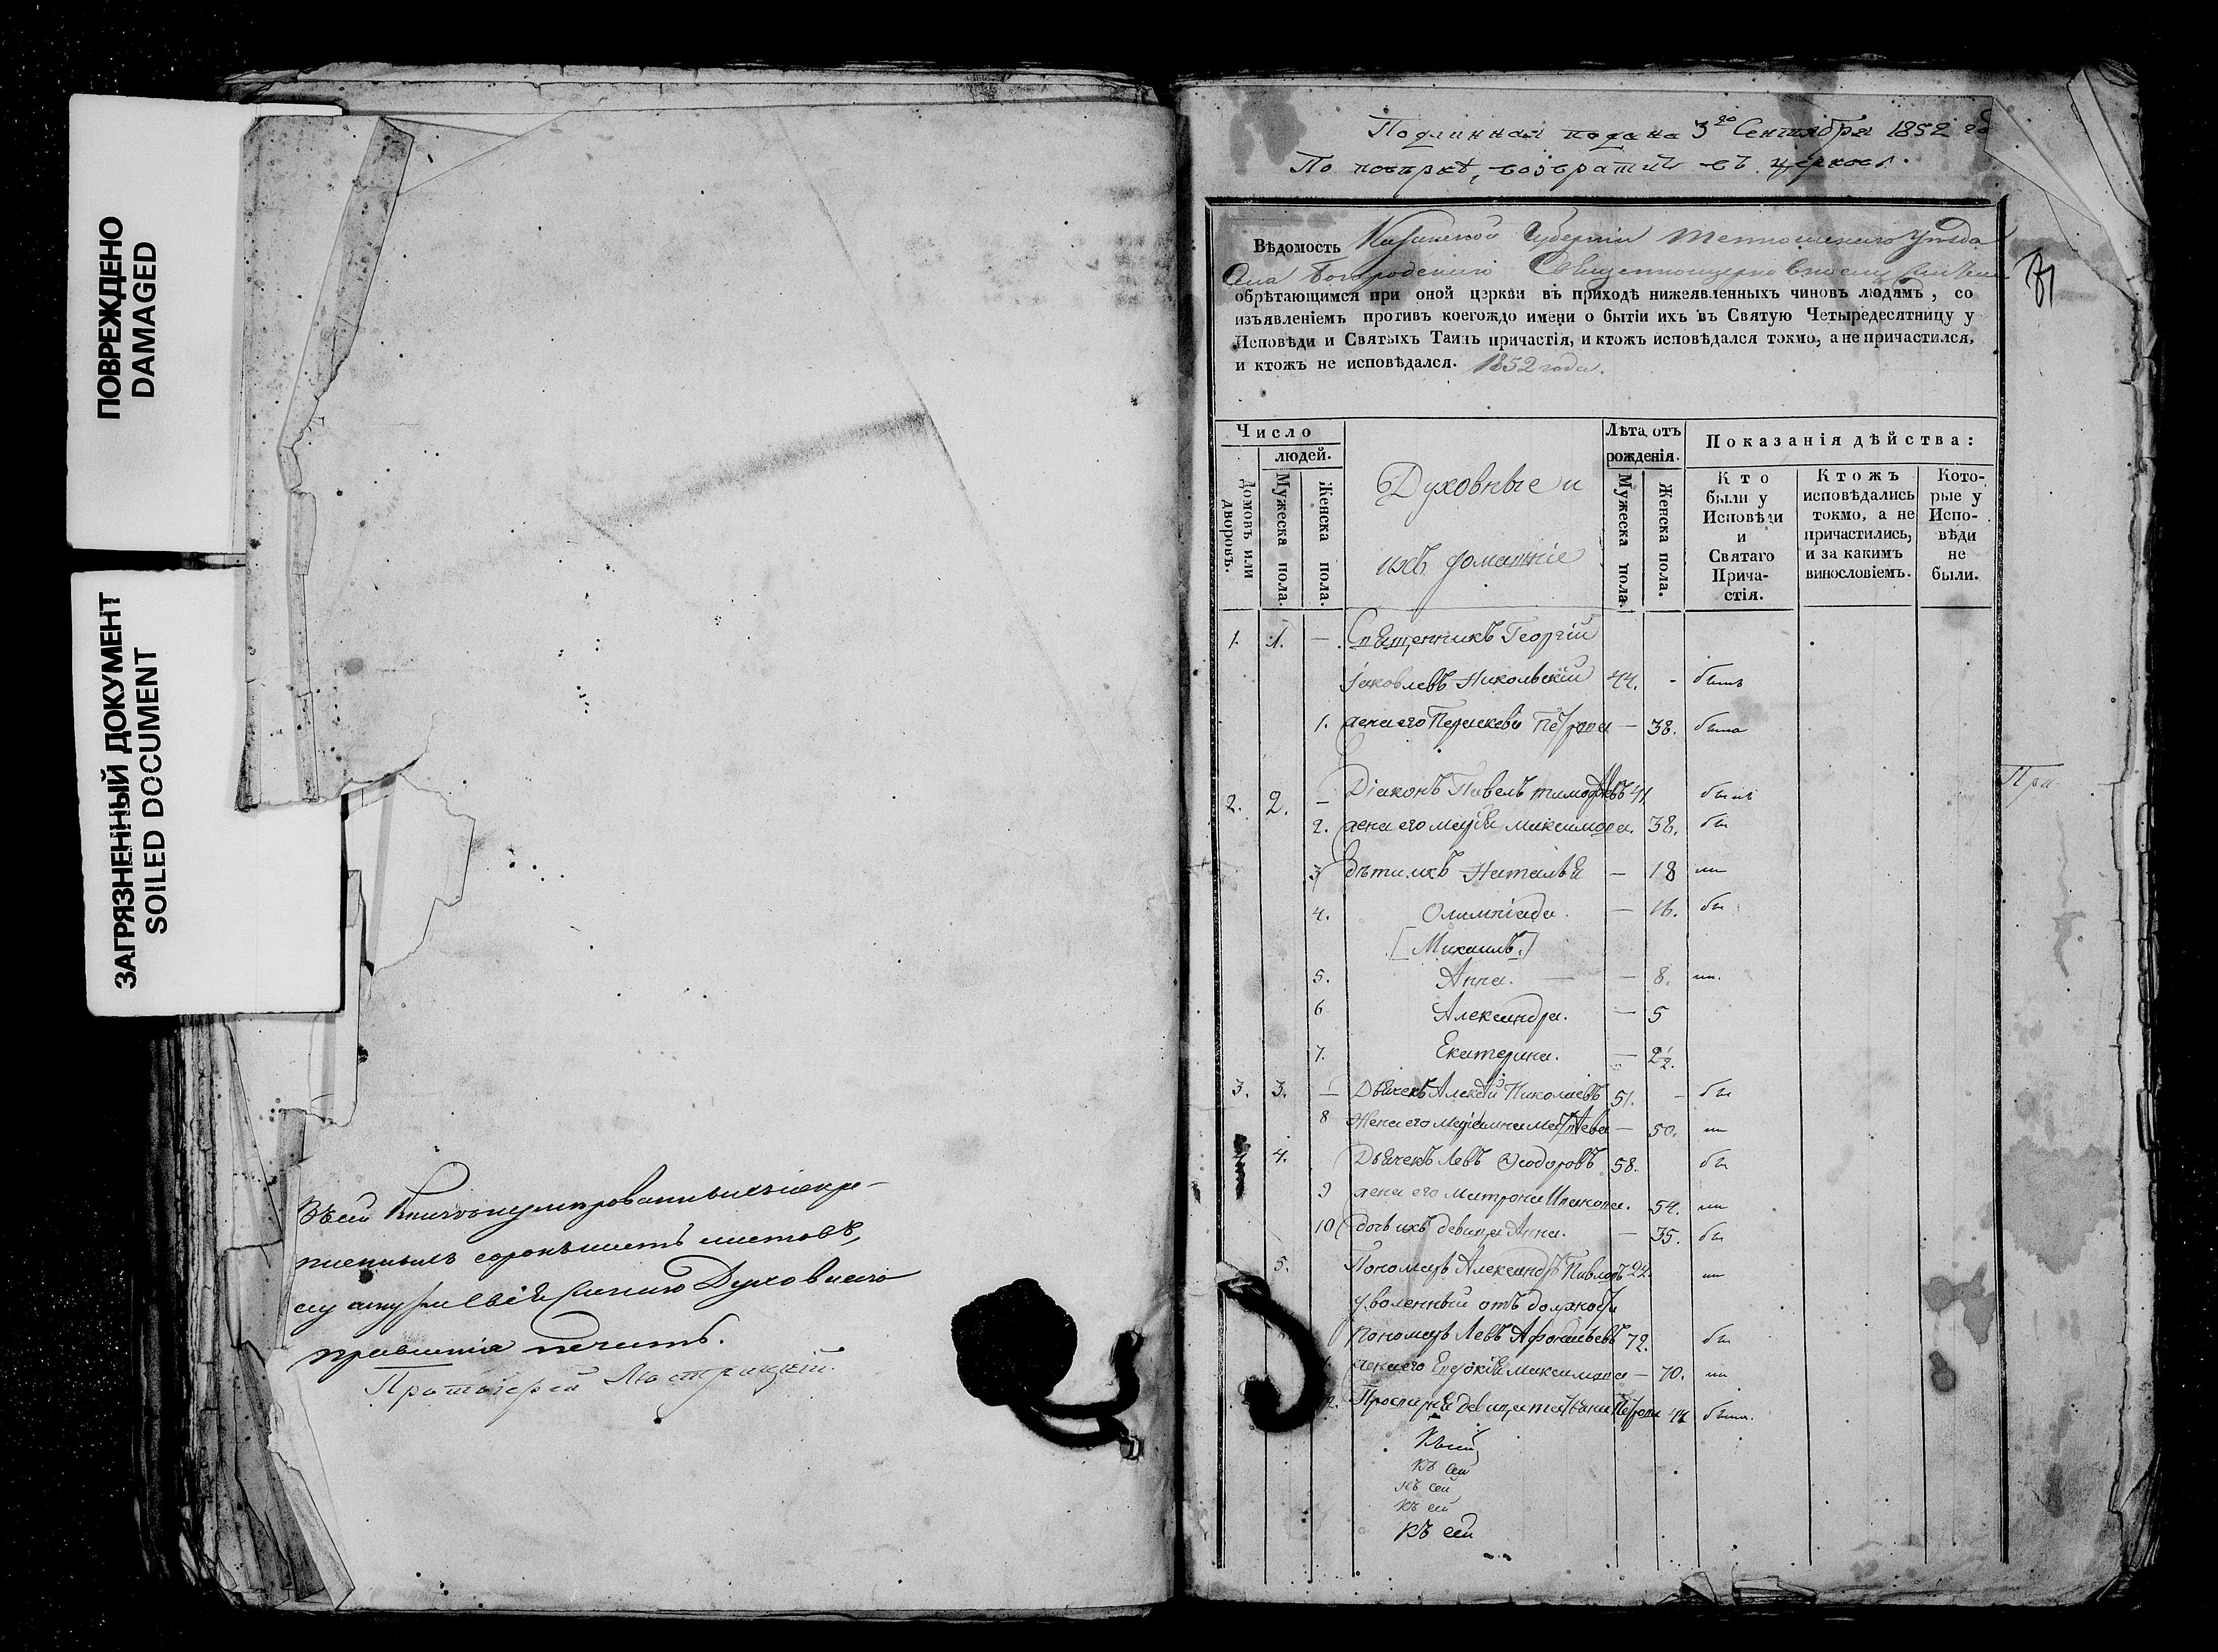 ПОВРЕЖДЕНО
DAMAGED
ЗАГРЯЗНЕННЫЙ ДОКУМЕНТ
SOILED DOCUMENT
сорокъ шесть листовъ,
Духовнаго
правленія печать.
Протоіерей
Подлинная подана 3го Сентября 1852 го
По повѣркѣ, возвратить въ церковь.
Вѣдомость Казанской Губерніи Тетюшскаго Уѣзда
Села Богородскаго Священноцерковнослужителей
обрѣтающимся при оной церкви въ приходѣ нижеявленныхъ чиновъ людямъ, со
изъявленіемъ противъ коегождо имени о бытіи ихъ въ Святую Четыредесятницу у
Исповѣди и Святыхъ Таинъ причастія, и ктожъ исповѣдался токмо, а не причастился,
и ктожъ не исповѣдался. 1852 года.
Число
людей.
Домовъ или дворовъ.
Мужеска пола.
Женска пола.
Духовные и
ихъ домашніе
Лѣта отъ
рожденія.
Мужеска пола.
Женска пола.
Показанія дѣйства:
Кто
были у
Исповѣди
и
Святаго
Прича-
стія.
Ктожъ
исповѣдались
токмо, а не
причастились,
и за какимъ
винословіемъ.
Кото-
рые у
Испо-
вѣди
не
были.
1. 1. — Священникъ Георгій
Іаковлевъ Никольскій 44. - былъ
1. жена его Параскева Петрова — 38. была
2. 2. — Діаконъ Павелъ Тимофѣевъ 41 былъ
2. жена его Марія Максимова. 38. бы
3 дѣти ихъ Наталья — 18
4. Олимпіада. — 16. бы
[Михаилъ.]
5. Анна. — — 8.
6 Александра. — 5
7. Екатерина. — 2½.
3. 3. — Дьячекъ Алексѣй Николаевъ 51. - бы
8 Жена его — 50.
4. Дьячекъ Левъ Ѳеодоровъ 58. бы
9 жена его Матрона 54.
10 дочь ихъ девица Анна. — 35. бы
5. Пономарь Александръ Павловъ 24.
Уволенный отъ должности
Пономарь Левъ Афонасьевъ 72. бы
жена его Евдокія Максимова — 70.
2. девица Петрова 44 была.
Къ сей
Къ сей
Къ сей
Къ сей
Къ сей
При